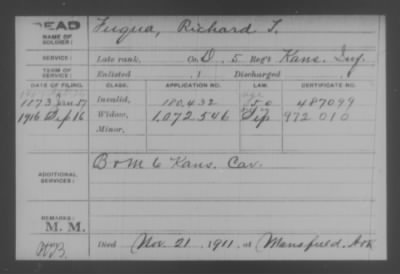 DEAD
NAME OF SOLDIER: Fuqua, Richard T.
SERVICE: Late rank, Co. D, 5 Reg't Kans. Inf.
TERM OF SERVICE: Enlisted , 1 Discharged , 1
DATE OF FILING. CLASS. APPLICATION NO. LAW. CERTIFICATE NO.
Invalid, 180,432 487099
1916 Sep 16 Widow, 1,072.546 Sep 972 010
Minor,
B & M 6 Kans. Cav.
ADDITIONAL SERVICES:
REMARKS:
M. M.
Died Nov. 21, 1911, at Mansfield, Ark